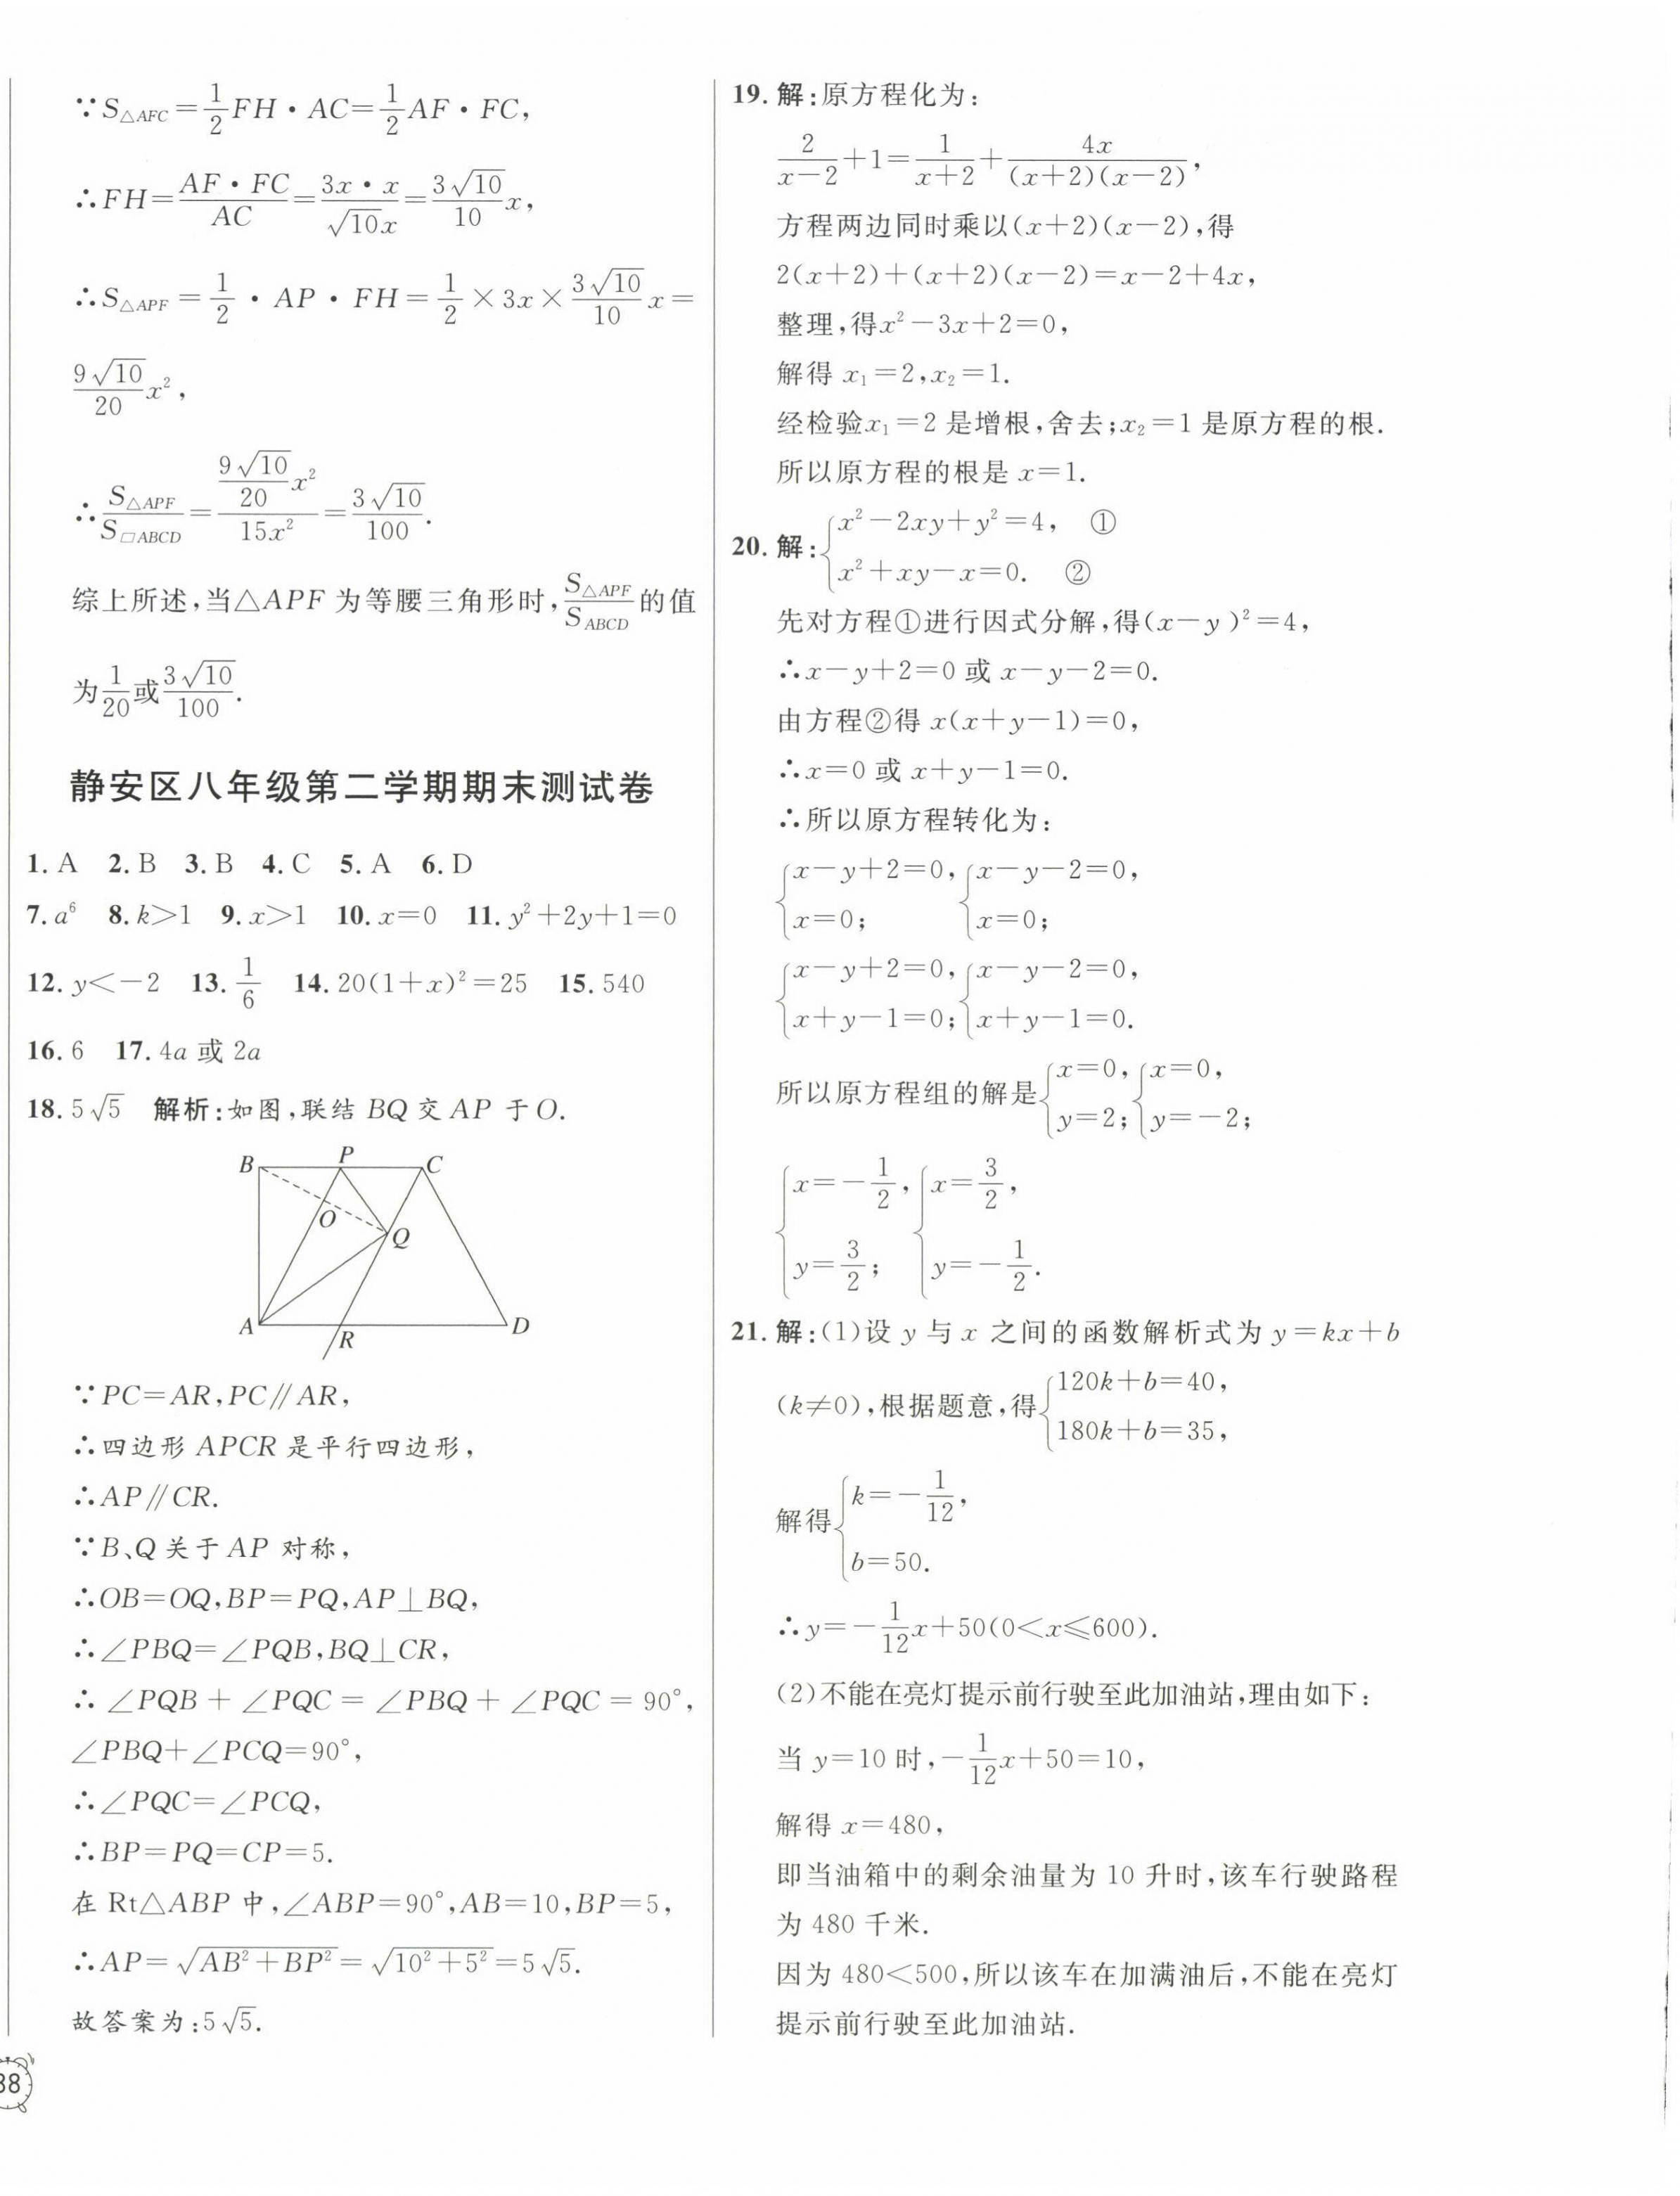 ∵S△AFC=1/2FH·AC=1/2AF·FC,
∴FH=AF·FC/AC=3x·x/√10x=3√10/10x,
∴S△APF=1/2·AP·FH=1/2×3x×3√10/10x=
9√10/20x²,
∴S△APF/S▱ABCD=(9√10/20x²)/15x²=3√10/100.
综上所述,当△APF为等腰三角形时,S△APF/S ABCD的值
为1/20或3√10/100.
静安区八年级第二学期期末测试卷
1. A 2. B 3. B 4. C 5. A 6. D
7. a⁶ 8. k>1 9. x>1 10. x=0 11. y²+2y+1=0
12. y<-2 13. 1/6 14. 20(1+x)²=25 15. 540
16. 6 17. 4a或2a
18. 5√5 解析:如图,联结BQ交AP于O.
B P C
O
Q
A R D
∵PC=AR,PC∥AR,
∴四边形APCR是平行四边形,
∴AP∥CR.
∵B、Q关于AP对称,
∴OB=OQ,BP=PQ,AP⊥BQ,
∴∠PBQ=∠PQB,BQ⊥CR,
∴∠PQB+∠PQC=∠PBQ+∠PQC=90°,
∠PBQ+∠PCQ=90°,
∴∠PQC=∠PCQ,
∴BP=PQ=CP=5.
在Rt△ABP中,∠ABP=90°,AB=10,BP=5,
∴AP=√(AB²+BP²)=√(10²+5²)=5√5.
故答案为:5√5.
38
19. 解:原方程化为:
2/(x-2)+1=1/(x+2)+4x/((x+2)(x-2)),
方程两边同时乘以(x+2)(x-2),得
2(x+2)+(x+2)(x-2)=x-2+4x,
整理,得x²-3x+2=0,
解得x₁=2,x₂=1.
经检验x₁=2是增根,舍去;x₂=1是原方程的根.
所以原方程的根是x=1.
20. 解:{x²-2xy+y²=4, ①
x²+xy-x=0. ②
先对方程①进行因式分解,得(x-y)²=4,
∴x-y+2=0或x-y-2=0.
由方程②得x(x+y-1)=0,
∴x=0或x+y-1=0.
∴所以原方程转化为:
{x-y+2=0, {x-y-2=0,
x=0; x=0;
{x-y+2=0, {x-y-2=0,
x+y-1=0; x+y-1=0.
所以原方程组的解是{x=0, {x=0,
y=2; y=-2;
{x=-1/2, {x=3/2,
y=3/2; y=-1/2.
21. 解:(1)设y与x之间的函数解析式为y=kx+b
(k≠0),根据题意,得{120k+b=40,
180k+b=35,
解得{k=-1/12,
b=50.
∴y=-1/12x+50(0<x≤600).
(2)不能在亮灯提示前行驶至此加油站,理由如下:
当y=10时,-1/12x+50=10,
解得x=480,
即当油箱中的剩余油量为10升时,该车行驶路程
为480千米.
因为480<500,所以该车在加满油后,不能在亮灯
提示前行驶至此加油站.